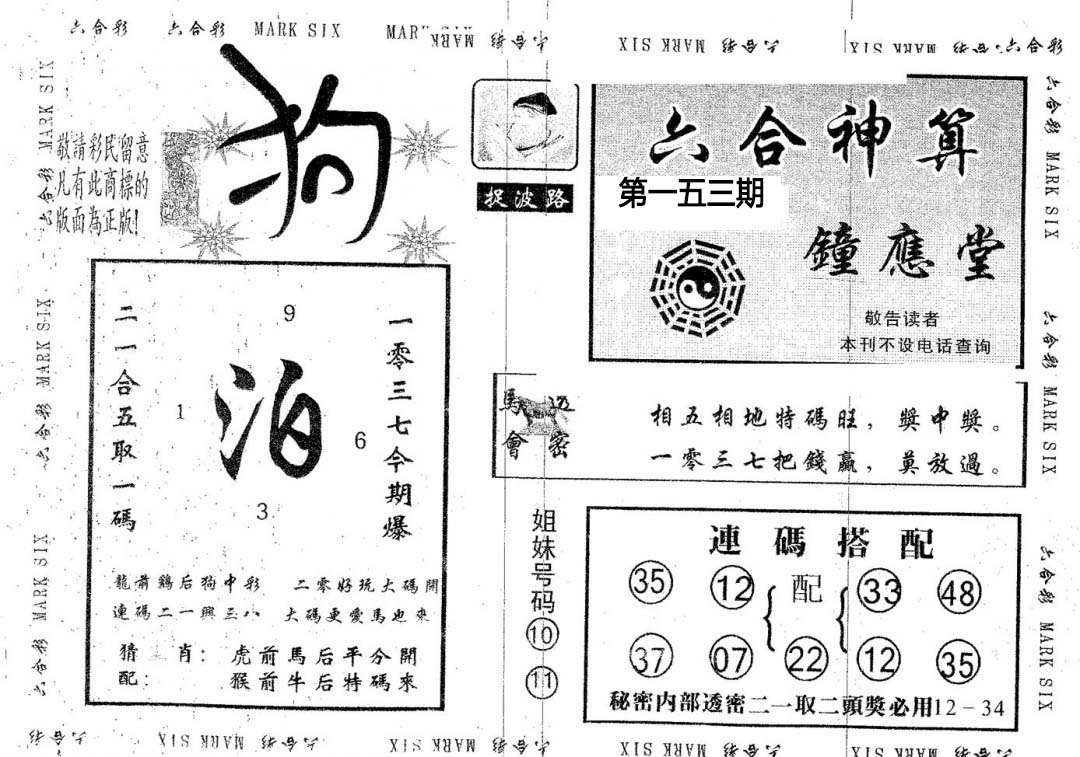 六合彩 六合彩 MARK SIX MAR MARK 六合彩 MARK SIX 六合彩 MARK SIX 六合彩
狗
敬請彩民留意
凡有此商標的
版面為正版!
捉波路
六合神算
第一五三期
鐘應堂
敬告读者
本刊不设电话查询
二一合五取一碼
9
1
泊
6
3
一零三七今期爆
龍前鷄后狗中彩 二零好玩大碼開
連碼二一興三八 大碼更愛馬也來
猜 肖：虎前馬后平分開
配：猴前牛后特碼來
馬會 透密
相五相地特碼旺，獎中獎。
一零三七把錢贏，莫放過。
姐妹号码
10
11
連碼搭配
35 12 { 配 { 33 48
37 07 22 12 35
秘密内部透密二一取二頭獎必用12-34
六合彩 MARK SIX 六合彩 MARK SIX 六合彩 MARK SIX
六合彩 MARK SIX 六合彩 MARK SIX 六合彩 MARK SIX
六合彩 MARK SIX 六合彩 MARK SIX 六合彩 MARK SIX 六合彩 MARK SIX 六合彩